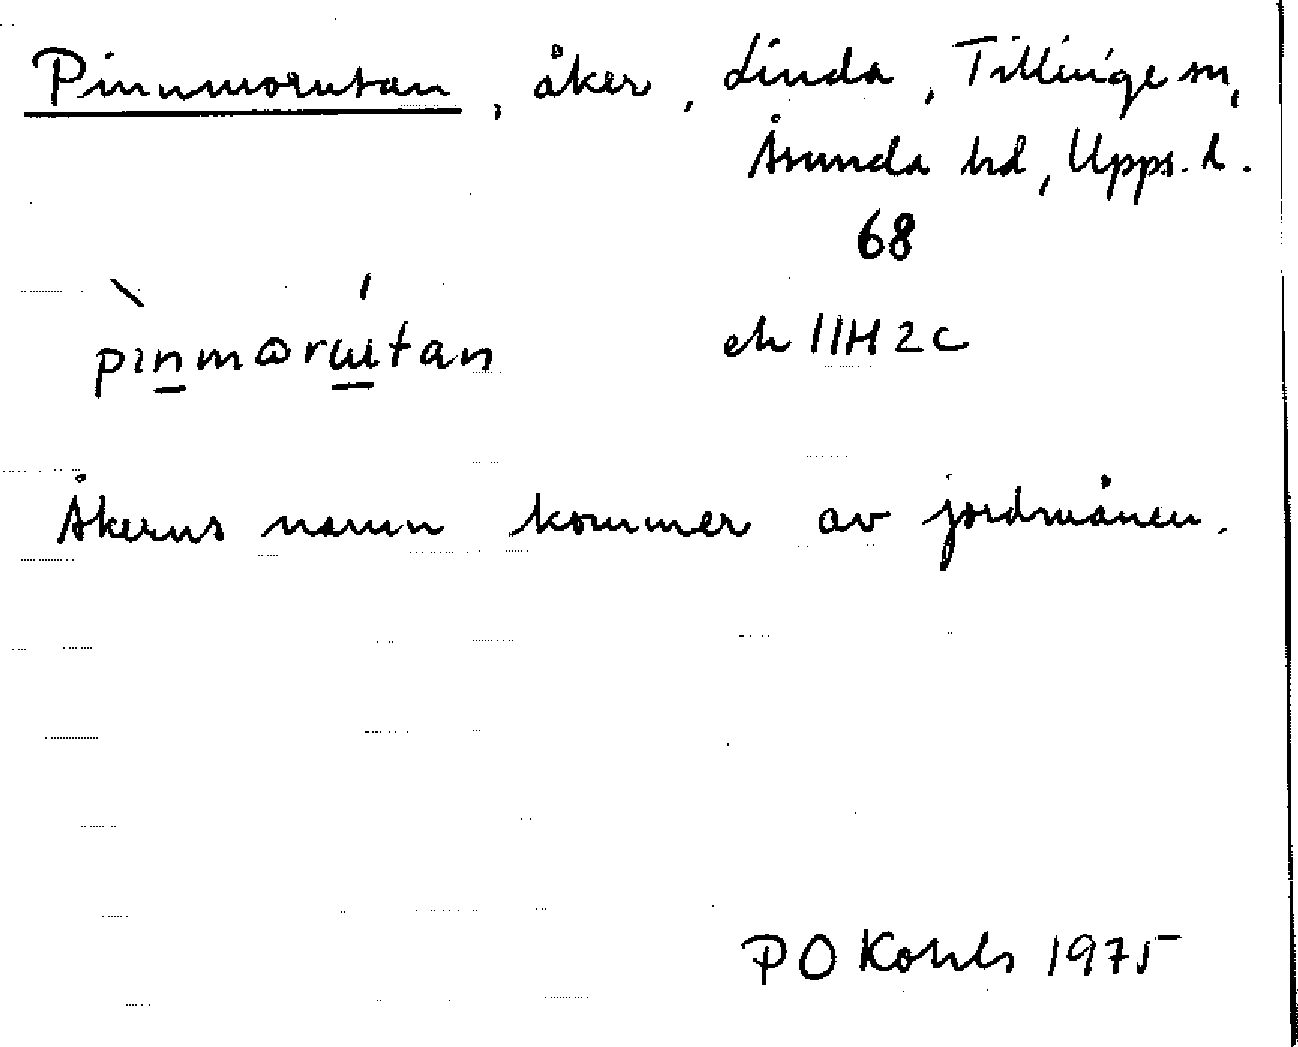 Pinnmorutan, åker, Linda, Tillinge sn,
Åsunda hd, Upps. l.
68
pìnmωrɯ́tan ek 11H2c
Åkerns namn kommer av jordmånen.
P O Kohls 1975